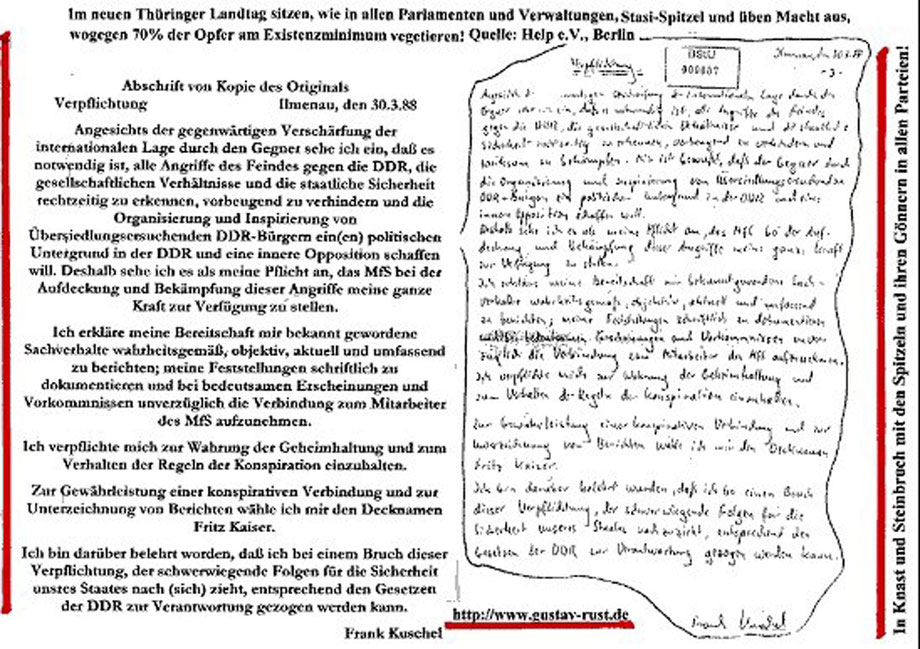 Im neuen Thüringer Landtag sitzen, wie in allen Parlamenten und Verwaltungen, Stasi-Spitzel und üben Macht aus,
wogegen 70% der Opfer am Existenzminimum vegetieren! Quelle: Help e.V., Berlin
Abschrift von Kopie des Originals
Verpflichtung Ilmenau, den 30.3.88
Angesichts der gegenwärtigen Verschärfung der
internationalen Lage durch den Gegner sehe ich ein, daß es
notwendig ist, alle Angriffe des Feindes gegen die DDR, die
gesellschaftlichen Verhältnisse und die staatliche Sicherheit
rechtzeitig zu erkennen, vorbeugend zu verhindern und die
Organisierung und Inspirierung von
Übersiedlungsersuchenden DDR-Bürgern ein(en) politischen
Untergrund in der DDR und eine innere Opposition schaffen
will. Deshalb sehe ich es als meine Pflicht an, das MfS bei der
Aufdeckung und Bekämpfung dieser Angriffe meine ganze
Kraft zur Verfügung zu stellen.
Ich erkläre meine Bereitschaft mir bekannt gewordene
Sachverhalte wahrheitsgemäß, objektiv, aktuell und umfassend
zu berichten; meine Feststellungen schriftlich zu
dokumentieren und bei bedeutsamen Erscheinungen und
Vorkommnissen unverzüglich die Verbindung zum Mitarbeiter
des MfS aufzunehmen.
Ich verpflichte mich zur Wahrung der Geheimhaltung und zum
Verhalten der Regeln der Konspiration einzuhalten.
Zur Gewährleistung einer konspirativen Verbindung und zur
Unterzeichnung von Berichten wähle ich mir den Decknamen
Fritz Kaiser.
Ich bin darüber belehrt worden, daß ich bei einem Bruch dieser
Verpflichtung, der schwerwiegende Folgen für die Sicherheit
unsres Staates nach (sich) zieht, entsprechend den Gesetzen
der DDR zur Verantwortung gezogen werden kann.
Frank Kuschel
http://www.gustav-rust.de
BStU
000007
Ilmenau, den 30.3.88
- 3 -
Verpflichtung
internationalen Lage durch den
Gegner sehe ich ein, daß es notwendig ist, alle Angriffe des Feindes
gegen die DDR, die gesellschaftlichen Verhältnisse und die staatliche
Sicherheit rechtzeitig zu erkennen, vorbeugend zu verhindern und
zu bekämpfen. Mir ist bewußt, daß der Gegner durch
die Organisierung und Inspirierung von Übersiedlungsersuchenden
DDR-Bürgern ein politischen Untergrund in der DDR und eine
innere Opposition schaffen will.
Deshalb sehe ich es als meine Pflicht an, das MfS bei der Auf-
deckung und Bekämpfung dieser Angriffe meine ganze Kraft
zur Verfügung zu stellen.
Ich erkläre meine Bereitschaft mir bekanntgewordene Sach-
verhalte wahrheitsgemäß, objektiv, aktuell und umfassend
zu berichten; meine Feststellungen schriftlich zu dokumentieren
Erscheinungen und Vorkommnissen
die Verbindung zum Mitarbeiter des MfS aufzunehmen.
Ich verpflichte mich zur Wahrung der Geheimhaltung und
zum Verhalten der Regeln der Konspiration einzuhalten.
Zur Gewährleistung einer konspirativen Verbindung und zur
Unterzeichnung von Berichten wähle ich mir den Decknamen
Fritz Kaiser.
Ich bin darüber belehrt worden, daß ich bei einem Bruch
dieser Verpflichtung, der schwerwiegende Folgen für die
Sicherheit unseres Staates nach zieht, entsprechend den
Gesetzen der DDR zur Verantwortung gezogen werden kann.
Frank Kuschel
In Knast und Steinbruch mit den Spitzeln und ihren Gönnern in allen Parteien!